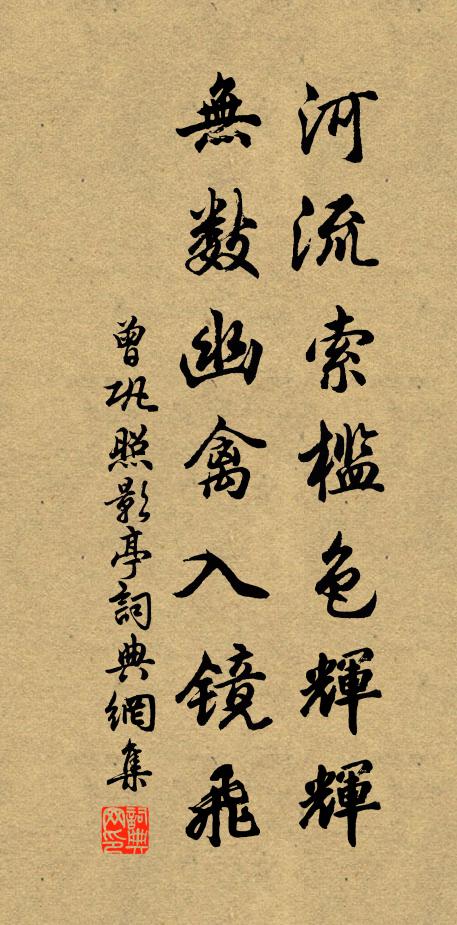 河流索檻色輝輝
無數幽禽入鏡飛
曾巩照影亭詞典網集
詞典网印